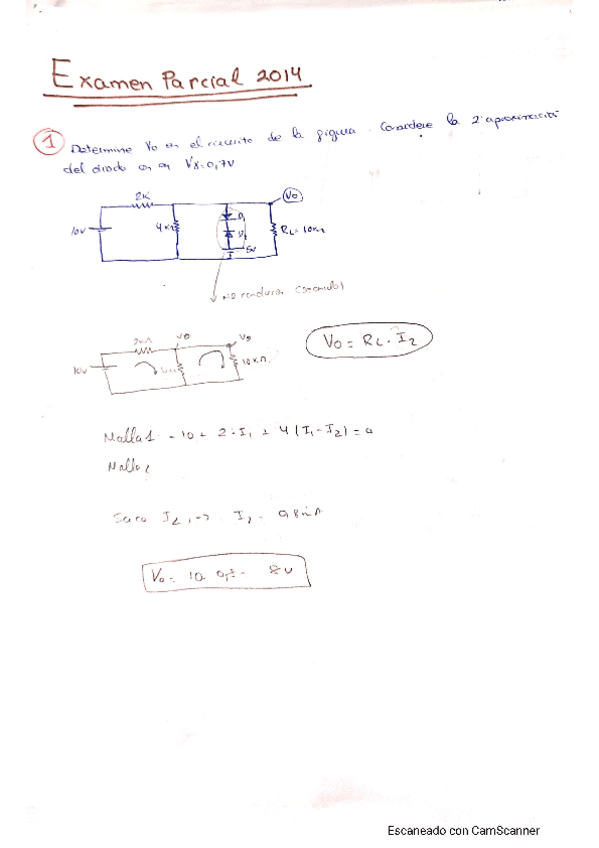 Examen Parcial 2014
1 Determine Vo en el circuito de la figura. Considere la 2ª aproximación
del diodo con Vγ=0,7V
2K
Vo
10V
4K
D1
RL=10KΩ
5V
NO conduce
10V
Vo
Vo
10KΩ
Vo = RL . I2
Malla 1 - 10 + 2 . I1 + 4 (I1 - I2) = 0
Malla 2
Saco I2
Vo = 10. 8V
Escaneado con CamScanner